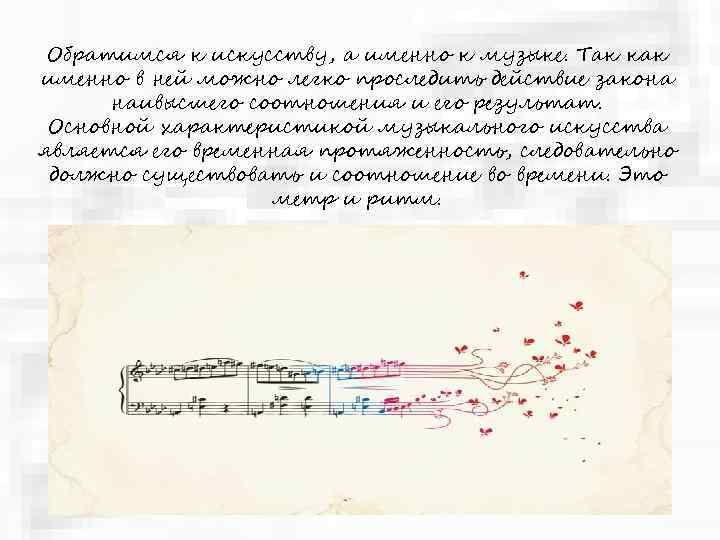 Обратимся к искусству, а именно к музыке. Так как
именно в ней можно легко проследить действие закона
наивысшего соотношения и его результат.
Основной характеристикой музыкального искусства
является его временная протяженность, следовательно
должно существовать и соотношение во времени. Это
метр и ритм.